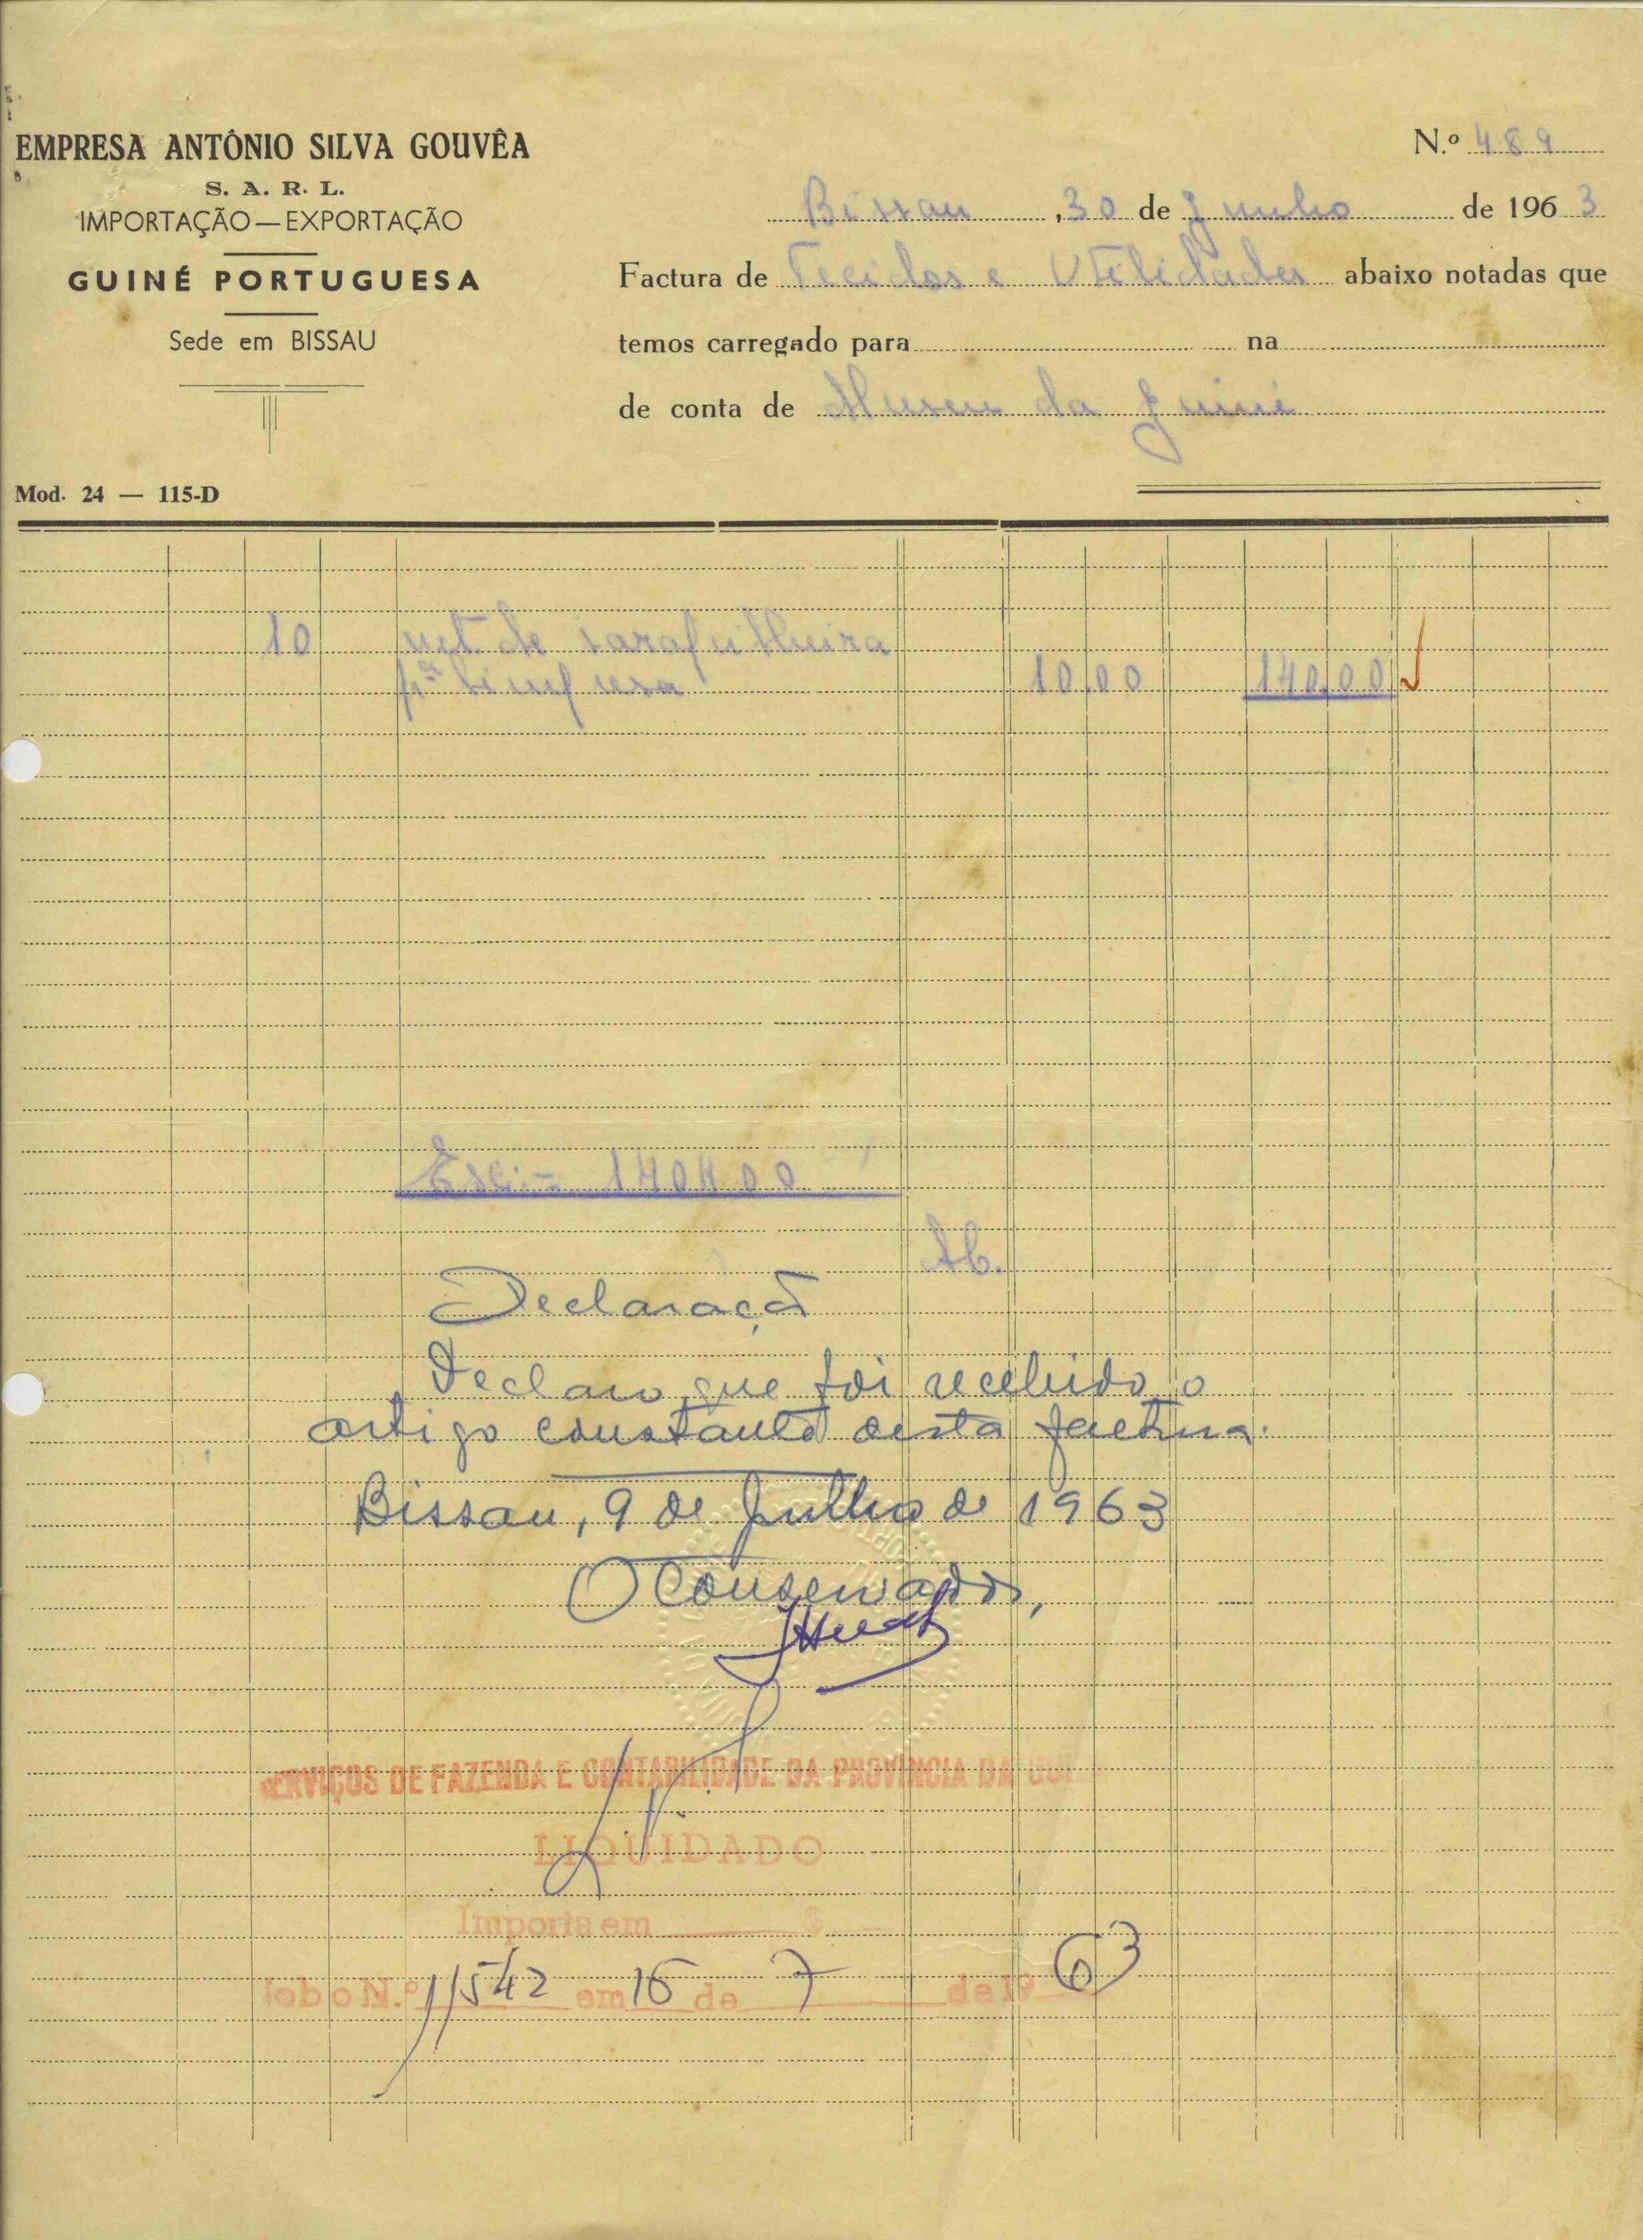 EMPRESA ANTÔNIO SILVA GOUVÊA
S. A. R. L.
IMPORTAÇÃO — EXPORTAÇÃO
GUINÉ PORTUGUESA
Sede em BISSAU
Mod. 24 — 115-D
N.º 489
Bissau, 30 de Junho de 1963
Factura de Tecidos e Utilidades abaixo notadas que
temos carregado para na
de conta de Museu da Guiné
10 mt. de sarafulheira
pª limpesa 10,00 140,00
Esc:= 140$00
Declaração
Declaro que foi recebido o
artigo constante desta factura.
Bissau, 9 de Julho de 1963
O Conservador,
SERVIÇOS DE FAZENDA E CONTABILIDADE DA PROVÍNCIA DA GUI
LIQUIDADO
Importa em $
N.º 11542 em 16 de 7 de 19 63